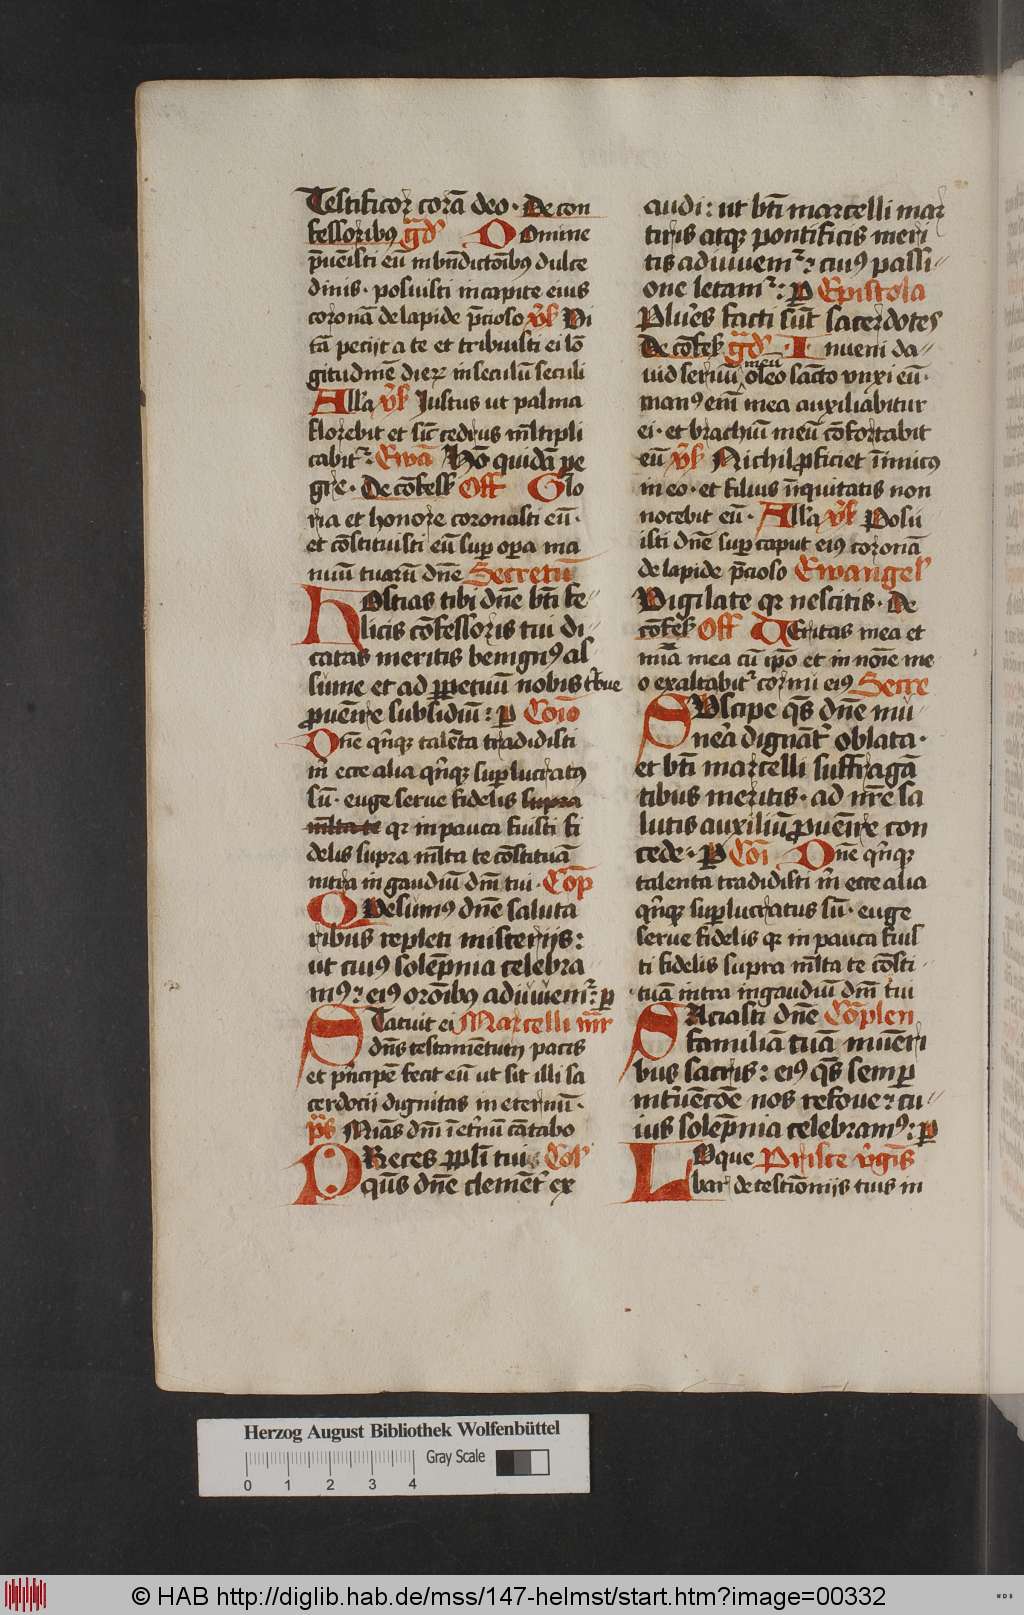 Testificor corā deo · De con
fessoribꝰ gᷓd̕ Domine
p̄uēisti eū in bn̄dictōibꝰ dulce
dinis · posuisti in capite eius
coronā de lapide p̄cioso v̕ß Vi
tā petijt a te et tribuisti ei lō
gitudinē dieꝝ in seculū seculi
All'a v̕ß Justus ut palma
florebit et sic̄ cedrus ml̄tipli
cabit᷑ : Ewā Hō quidā pe
gre · De cōfess̕ Off Glo
ria et honore coronasti eū ·
et cōstituisti eū suꝑ oꝑa ma
nuū tuarū dn̄e Secretū
HOstias tibi dn̄e bt̄i fe⸗
licis cōfessoris tui di⸗
catas meritis benignꝰ as
sume et ad ꝑpetuū nobis t̕bue
ꝓuēire subsidiū : ꝑ Cōio
Dn̄e qn̄qꝫ talēta tradidisti
m̄ ecce alia qn̄qꝫ suꝑlucratꝰ
sū · euge serue fidelis supra
ml̄ta te qꝛ in pauca fuisti fi
delis supra ml̄ta te cōstituā
intra in gaudiū dn̄i tui · Cōp̄
QVesumꝰ dn̄e saluta
ribus repleti misterijs :
ut cuiꝰ solēpnia celebra
mꝰ : eiꝰ orōibꝰ adiuuem᷑ : ꝑ
STatuit ei Marcelli mr̄
dn̄s testamētum pacis
et pn̄cipē fecit eū ut sit illi sa
cerdocij dignitas in eternū ·
p̄s Mīas dn̄i ī et̄nū cātabo
PReces ppl̄i tui Col'
qs̄ dn̄e clement᷑ ex
audi : ut bt̄i marcelli mar
tiris atqꝫ pontificis meri
tis adiuuem᷑ : cuiꝰ passi⸗
one letam᷑ : ꝑ Epistola
Plu̕es facti sūt sacerdotes
De cōfess̕ gᷓd̕ · Inueni da⸗
uid seruū meū oleo sācto vnxi eū ·
manꝰ em̄ mea auxiliabitur
ei · et brachiū meū cōfortabit
eū v̕ß Nichil ꝓficiet īimicꝰ
in eo · et filius īiquitatis non
nocebit eū · All'a v̕ß Posu
isti dn̄e suꝑ caput eiꝰ coronā
de lapide p̄cioso Ewangel'
Vigilate qꝛ nescitis · De
cōfess̕ Off Veritas mea et
mīa mea cū ip̄o et in noīe me
o exaltabit᷑ cornu eiꝰ Secre
SVscipe qs̄ dn̄e mu
nera dignāt᷑ oblata ·
et bt̄i marcelli suffragā
tibus meritis · ad nr̄e sa
lutis auxiliū ꝓuēire con
cede · ꝑ Cōi Dn̄e qn̄qꝫ
talenta tradidisti m̄ ecce alia
qn̄qꝫ suꝑlucratus sū · euge
serue fidelis qꝛ in pauca fuis
ti fidelis supra ml̄ta te cōsti
tuā intra in gaudiū dn̄i tui
SAciasti dn̄e Cōplen
familiā tuā muneri
bus sacris : eiꝰ qs̄ semꝑ
int̕uēcōe nos refoue : cu⸗
ius solēpnia celebramꝰ : ꝑ
LOque Prisce v̕gīs
bar de testīonijs tuis in
Herzog August Bibliothek Wolfenbüttel
Gray Scale
0 1 2 3 4
© HAB http://diglib.hab.de/mss/147-helmst/start.htm?image=00332